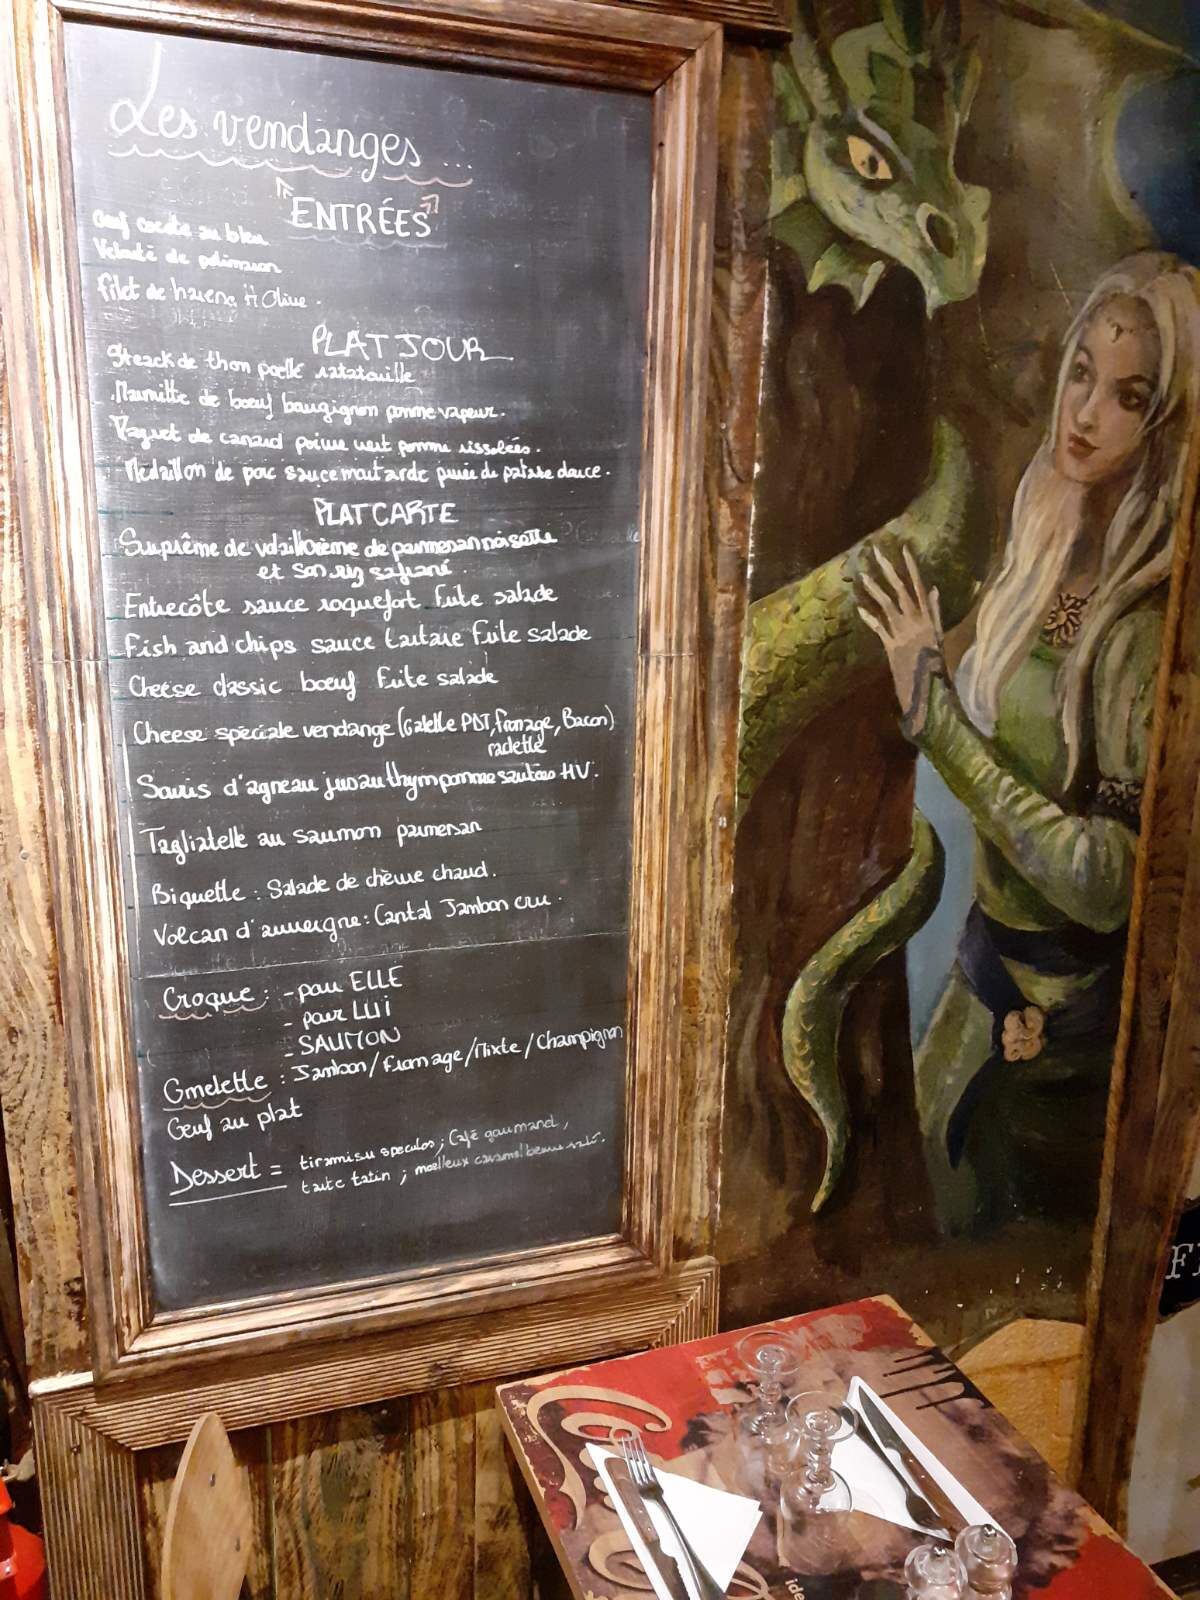 Les vendanges...
ENTRÉES
Oeuf cocotte au bleu
Velouté de potimaron
Filet de hareng H Olive.
PLAT JOUR
Steack de thon poelé ratatouille
Marmitte de boeuf bourgignon pomme vapeur.
de canard poivre vert pomme rissolées.
Médaillon de porc sauce moutarde purée de patate douce.
PLAT CARTE
Suprême de crème de parmesan noisette
et son riz safrané
Entrecôte sauce roquefort Frite salade
Fish and chips sauce tartare Frite salade
Cheese classic boeuf Frite salade
Cheese spéciale vendange (Galette PDT, fromage, Bacon)
raclette
Souris d'agneau jus au thym pomme sautées HV.
Tagliatelle au saumon parmesan
Biquette : Salade de chèvre chaud.
Volcan d'auvergne : Cantal Jambon cru.
Croque : - pour ELLE
- pour LUI
- SAUMON
Omelette : Jambon/Fromage/Mixte/Champignon
Oeuf au plat
Dessert = tiramisu speculos ; Café gourmand,
tarte tatin ; moelleux caramel beurre salé.